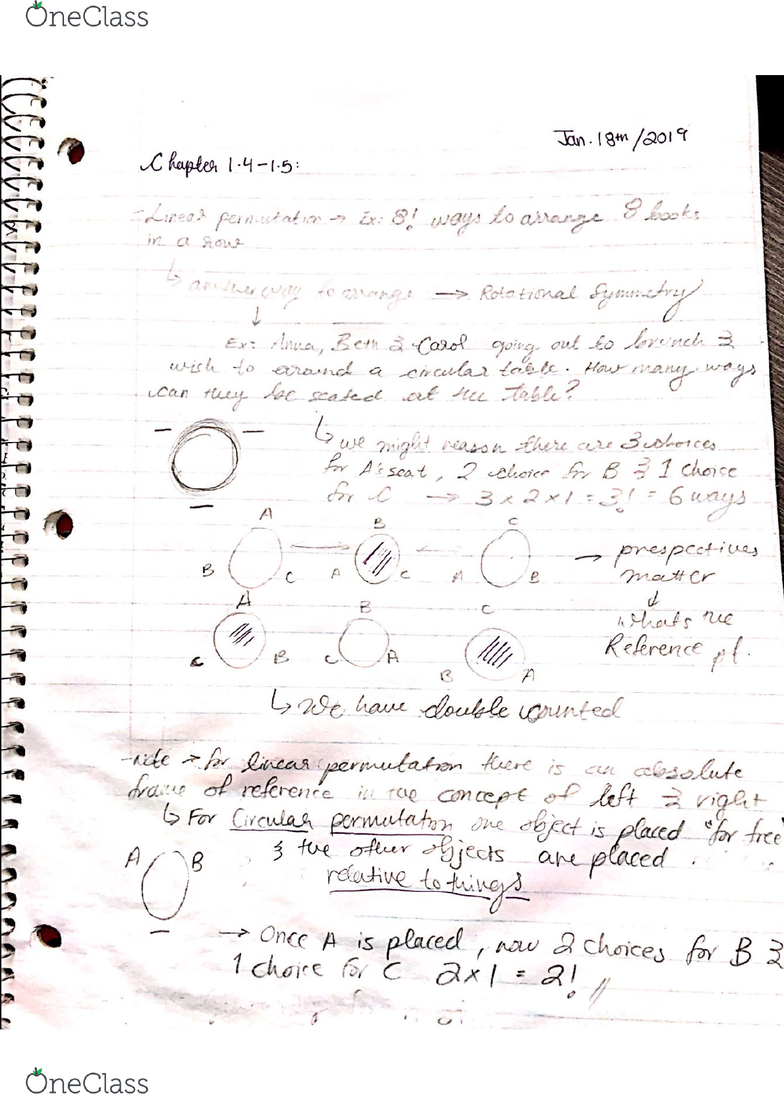 OneClass
Jan. 18th/2019
Chapter 1.4-1.5:
-Linear permutation → Ex: 8! ways to arrange 8 books
in a row
↳ another way to arrange → Rotational Symmetry
↓
Ex: Anna, Beth & Carol going out to brunch &
wish to around a circular table. How many ways
can they be seated at the table?
↳ we might reason there are 3 choices
for A's seat, 2 choice for B & 1 choice
for C → 3 x 2 x 1 = 3! = 6 ways
A B C
B C A C A B
→ prespectives
matter
↓
whats the
Reference pt.
A B C
C B C A B A
↳ we have double counted
-note → for linear permutation there is an absolute
frame of reference in the concept of left & right
↳ For Circular permutation one object is placed "for free"
& the other objects are placed
relative to things
A B
→ Once A is placed, now 2 choices for B &
1 choice for C 2x1 = 2!
OneClass